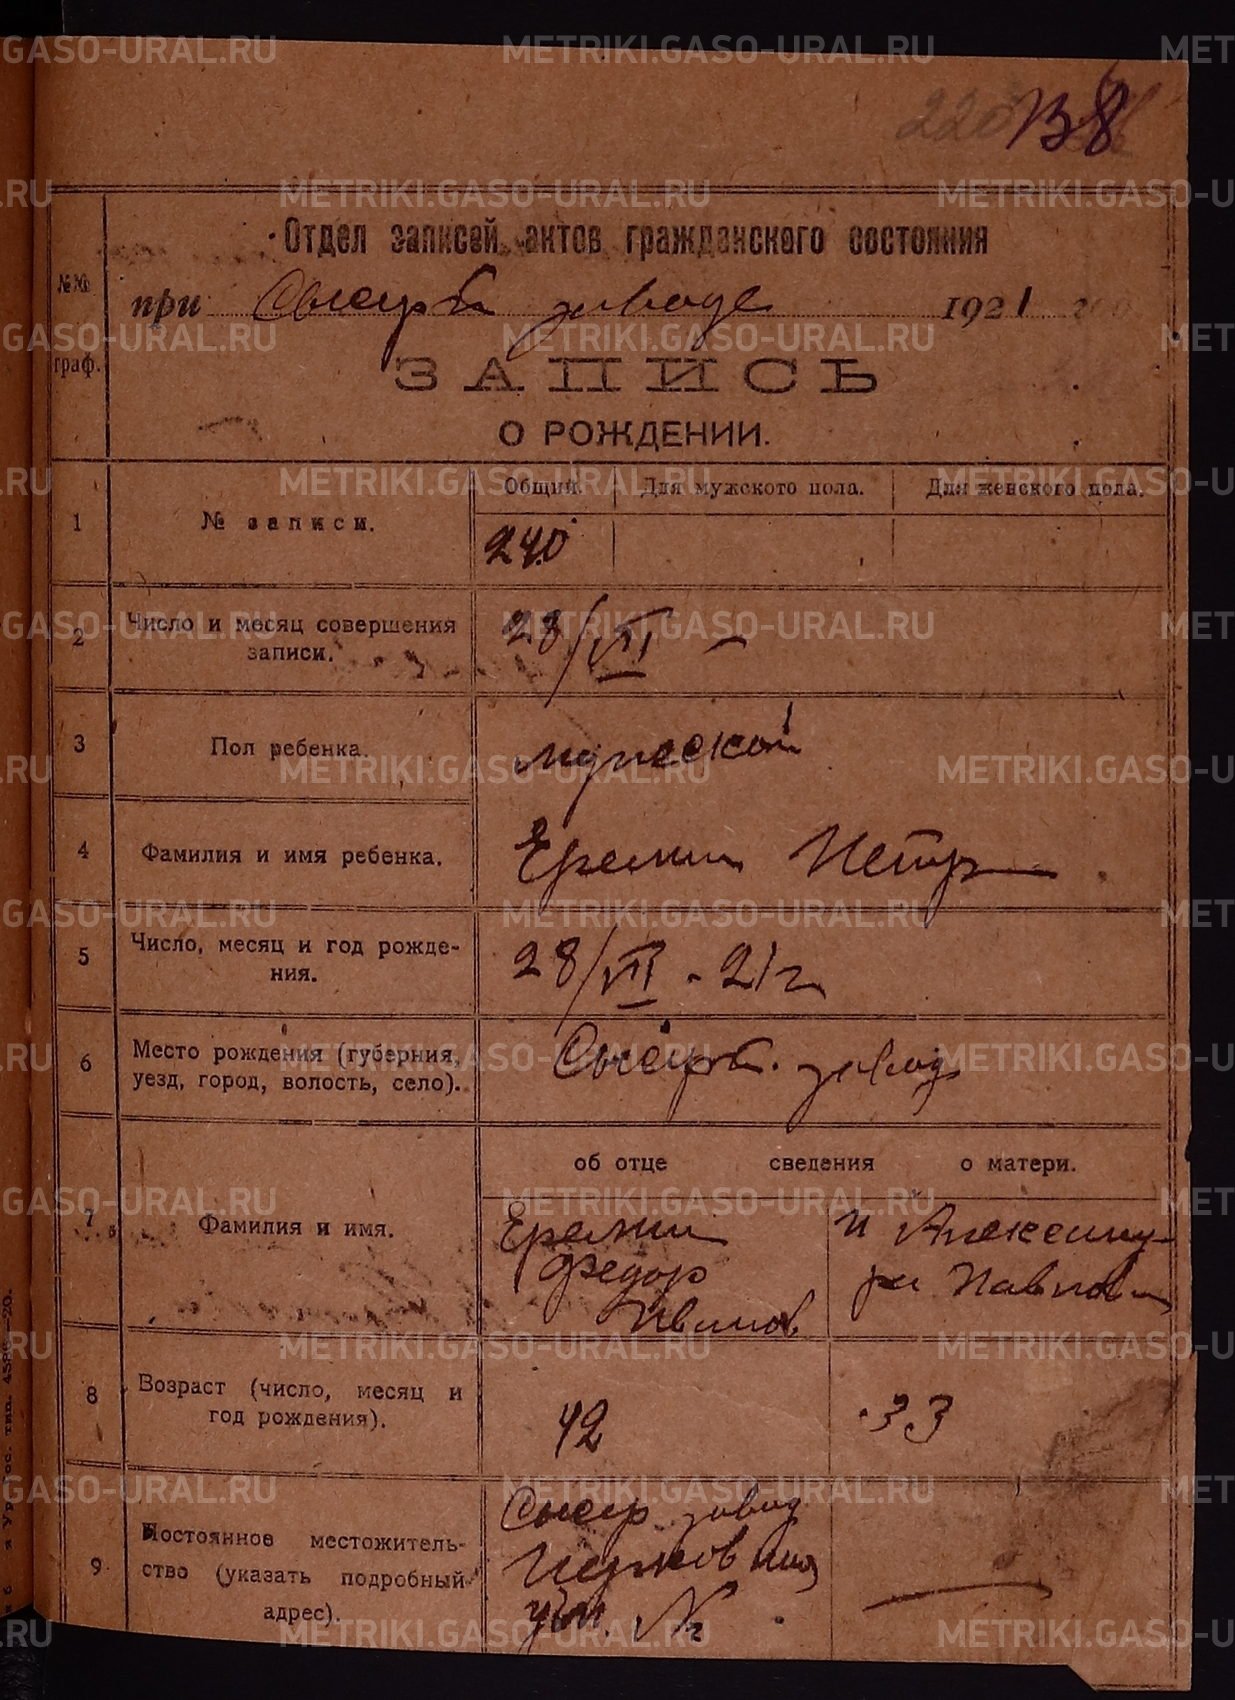 METRIKI.GASO-URAL.RU
138
Отдел записей актов гражданского состояния
№№ граф.
при Сысерт. заводе 1921
ЗАПИСЬ
О РОЖДЕНИИ.
Общий. Для мужского пола. Для женского пола.
1 № записи. 240
2 Число и месяц совершения
записи. 28/VII –
3 Пол ребенка. мужской
4 Фамилия и имя ребенка. Еремин Петр
5 Число, месяц и год рожде-
ния. 28/VII - 21 г.
6 Место рождения (губерния,
уезд, город, волость, село). Сысерт. завод
об отце сведения о матери.
7 Фамилия и имя.
Еремин
Федор
Иванов
и Александ
ра Павлов
8 Возраст (число, месяц и
год рождения). 42 33
9 Постоянное местожитель-
ство (указать подробный
адрес).
Сысер. завод
Церковная
ул. №